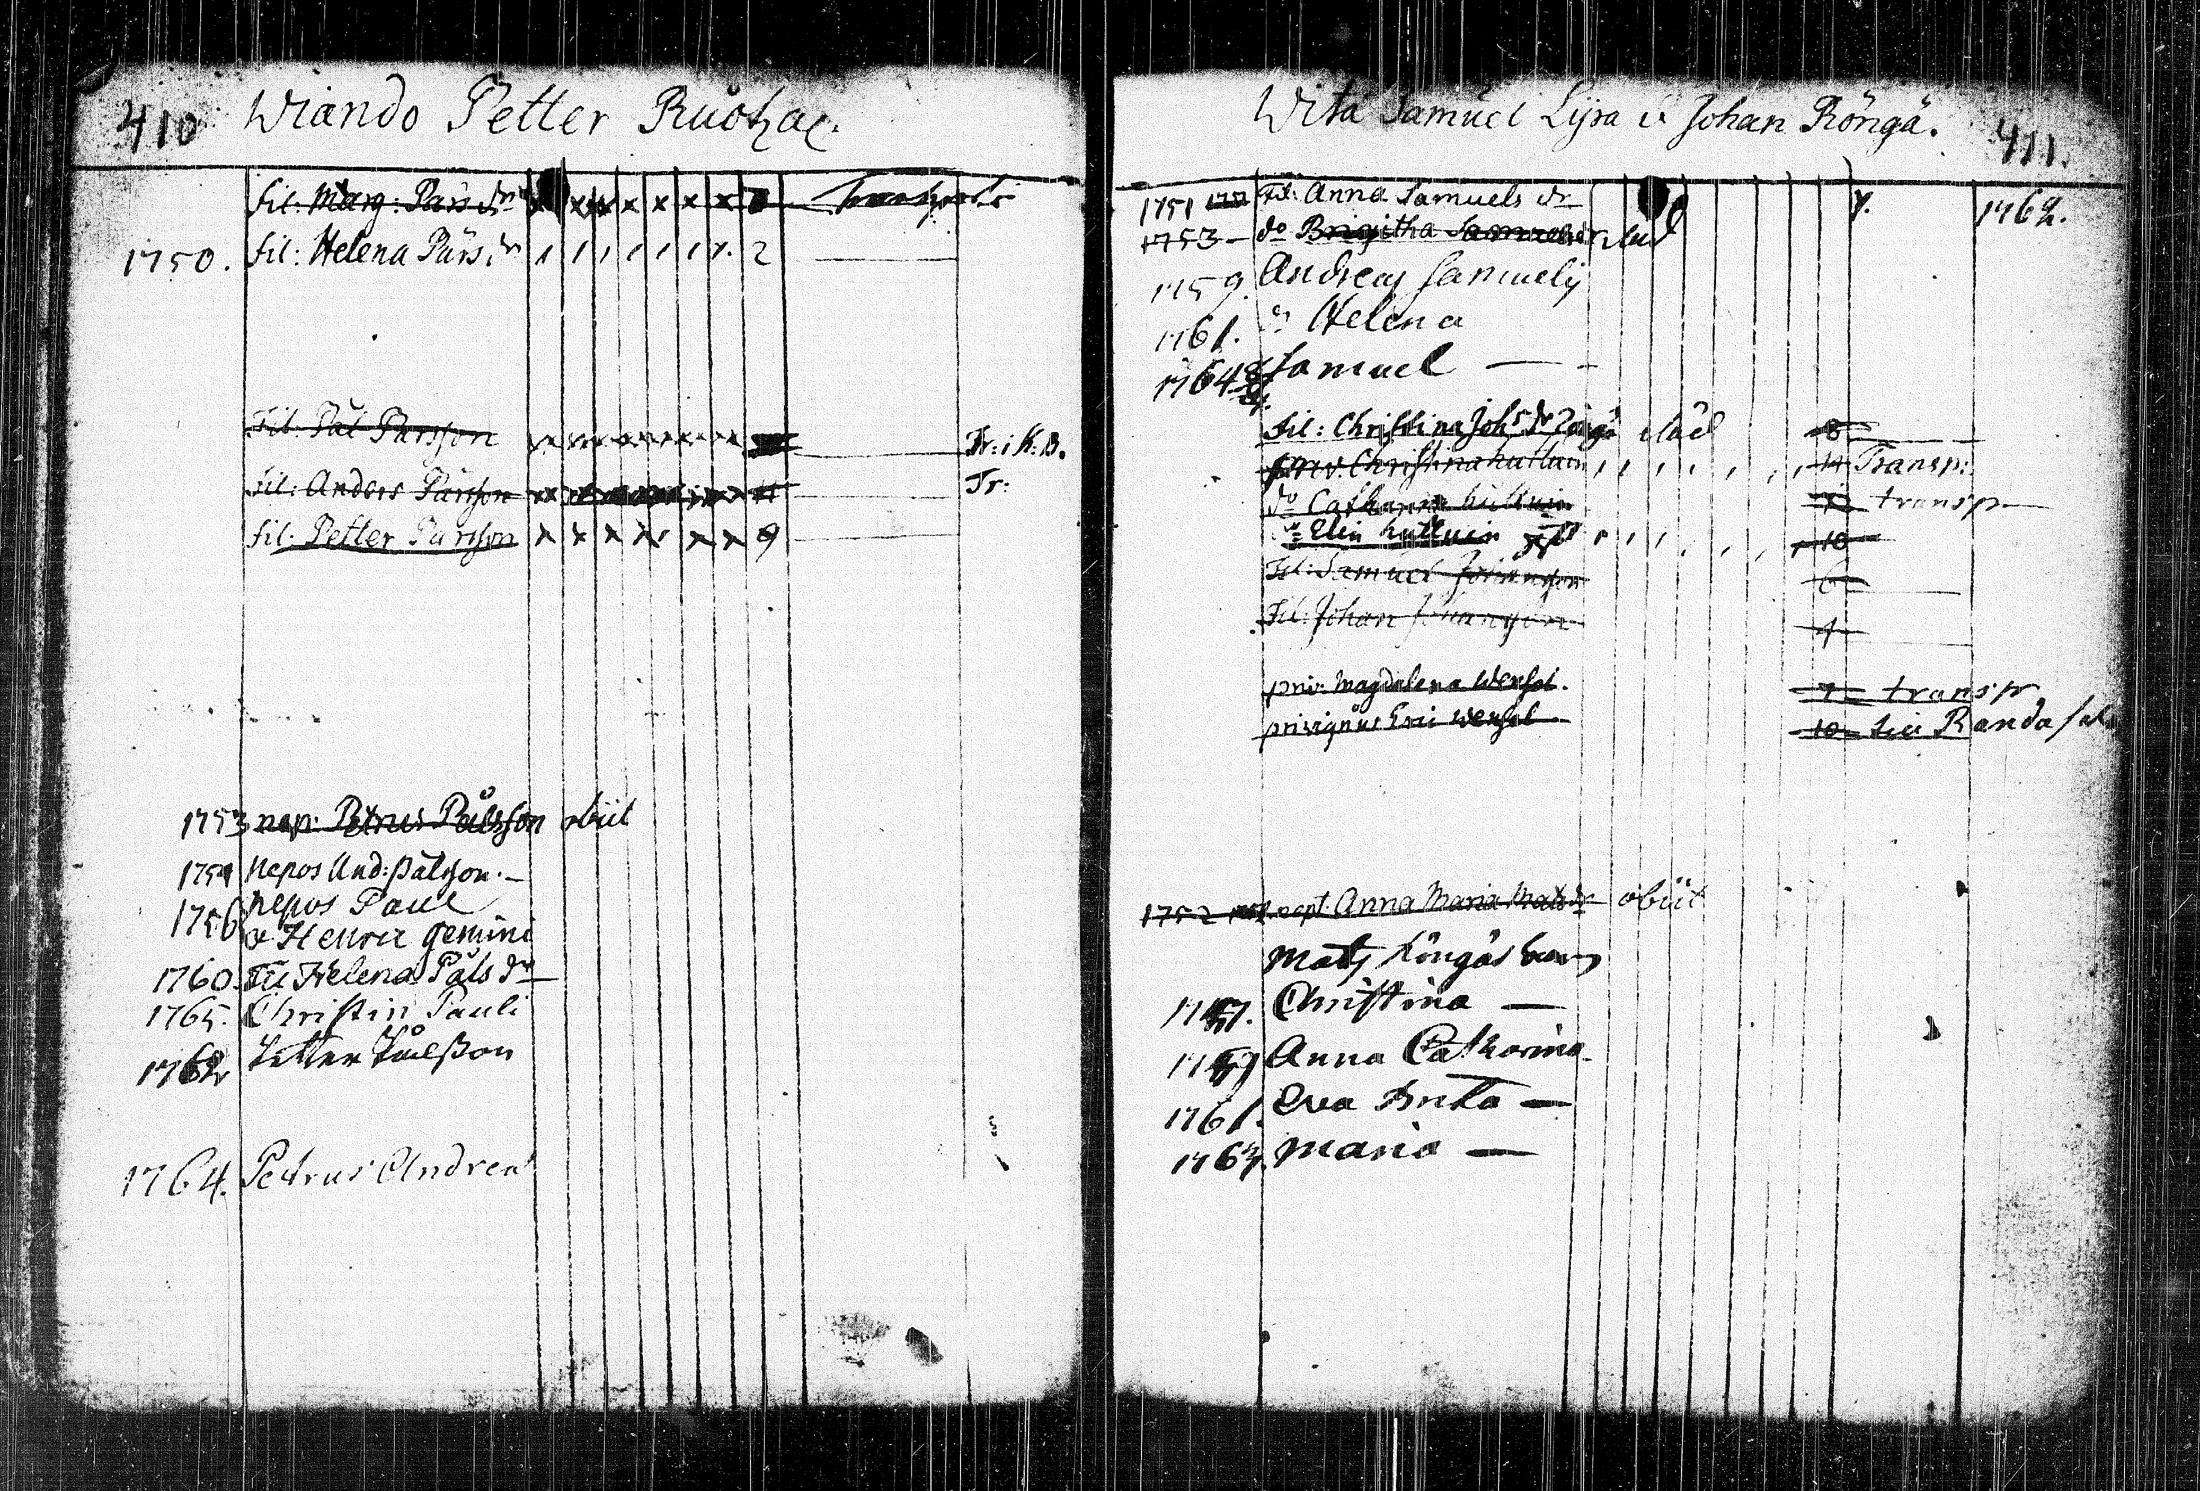 410 Wiando Petter Ruotzal.
fil: Marg: Pärs dr x x x x x x
1750. fil: Helena Pärs dr 1 1 1 1 1 1 7. 2
Fil: Pål Pärsson Fr: i K: B.
Fil: Anders Pärsson Tr:
fil: Petter Pärsson x x x x x x 9
1753 nep: Petrus Pålsson obiit
1754 Nepos And: Pålsson. —
1756 Nepos Paul
& Henric gemini
1760. Fil Helena Påls dr
1765. Christin Pauli
1762 Petter Pålsson
1764. Petrus Andreæ
Wita Samuel Lysa & Johan Köngä. 411.
1751 Fil: Anna Samuels dr 7. 1762.
1753 — do Brigitha Samuels dr
1759. Andreas Samuelis
1761. do Helena
1764 Samuel —
fil: Christina Joh dr död 8
priv. Christina huttuin 14 Transp:
do Catharina huttuin transp
do Elin huttuin 10
Fil: Samuel Johansson 6
Fil: Johan Johansson 4
priv: Magdalena Wensel. 7 transp
privignus Eric Wensel 10 Randa
1752 nept. Anna Maria Mats dr obiit
Mats Köngäs barn
Christina —
Anna Catharina
1761. Eva Brita —
1763. Maria —